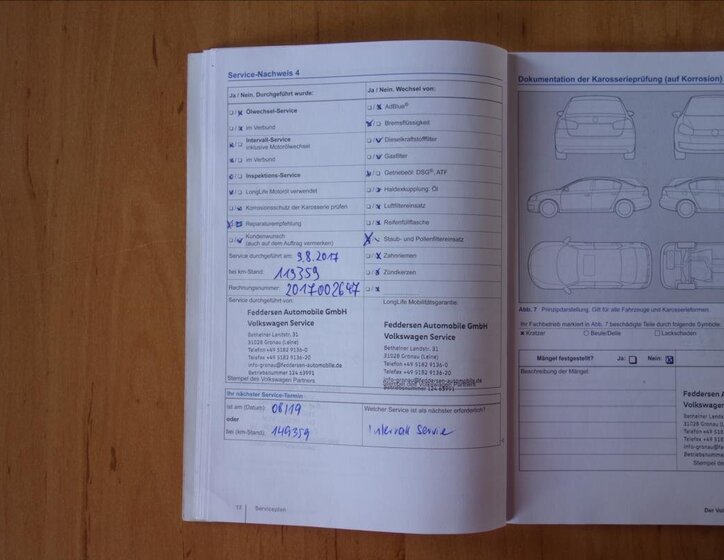 Service-Nachweis 4
Ja / Nein. Durchgeführt wurde:
Ölwechsel-Service
im Verbund
Intervall-Service
inklusive Motorölwechsel
im Verbund
Inspektions-Service
LongLife Motoröl verwendet
Korrosionsschutz der Karosserie prüfen
Reparaturempfehlung
Kundenwunsch
(auch auf dem Auftrag vermerken)
Service durchgeführt am: 9.8.2017
bei km-Stand: 119359
Rechnungsnummer: 2017002647
Service durchgeführt von:
Feddersen Automobile GmbH
Volkswagen Service
Betheiner Landstr. 31
31028 Gronau (Leine)
Telefon +49 5182 9136-0
Telefax +49 5182 9136-20
info-gronau@feddersen-automobile.de
Betriebsnummer 124 63991
Stempel des Volkswagen Partners
Ja / Nein. Wechsel von:
AdBlue®
Bremsflüssigkeit
Dieselkraftstofffilter
Gasfilter
Getriebeöl: DSG®, ATF
Haldexkupplung: Öl
Luftfiltereinsatz
Reifenfüllflasche
Staub- und Pollenfiltereinsatz
Zahnriemen
Zündkerzen
LongLife Mobilitätsgarantie:
Feddersen Automobile GmbH
Volkswagen Service
Betheiner Landstr. 31
31028 Gronau (Leine)
Telefon +49 5182 9136-0
Telefax +49 5182 9136-20
info-gronau@feddersen-automobile.de
Stempel des Volkswagen Partners
Betriebsnummer 124 63991
Ihr nächster Service-Termin
ist am (Datum): 08/19
oder
bei (km-Stand): 149359
Welcher Service ist als nächster erforderlich?
Intervall Service
12 Serviceplan
Dokumentation der Karosserieprüfung (auf Korrosion)
Abb. 7 Prinzipdarstellung. Gilt für alle Fahrzeuge und Karosserieformen.
Ihr Fachbetrieb markiert in Abb. 7 beschädigte Teile durch folgende Symbole:
x Kratzer ○ Beule/Delle □ Lackschaden
Mängel festgestellt? Ja: Nein:
Beschreibung der Mängel:
Feddersen
Volkswagen
Betheiner Landstr.
31028 Gronau (L
Telefon +49 518
Telefax +49 518
info-gronau@f
Betriebsnumme
Stempel des
Der Vol